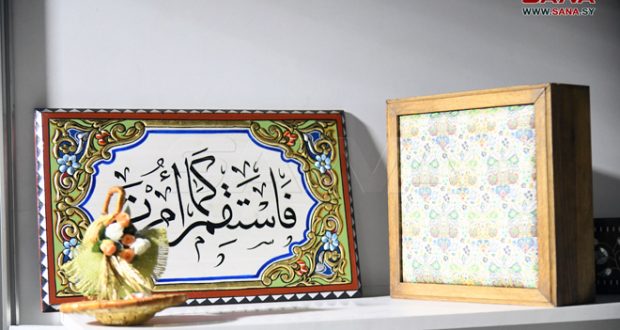 SANA
WWW.SANA.SY
فاستقم كما أمرت